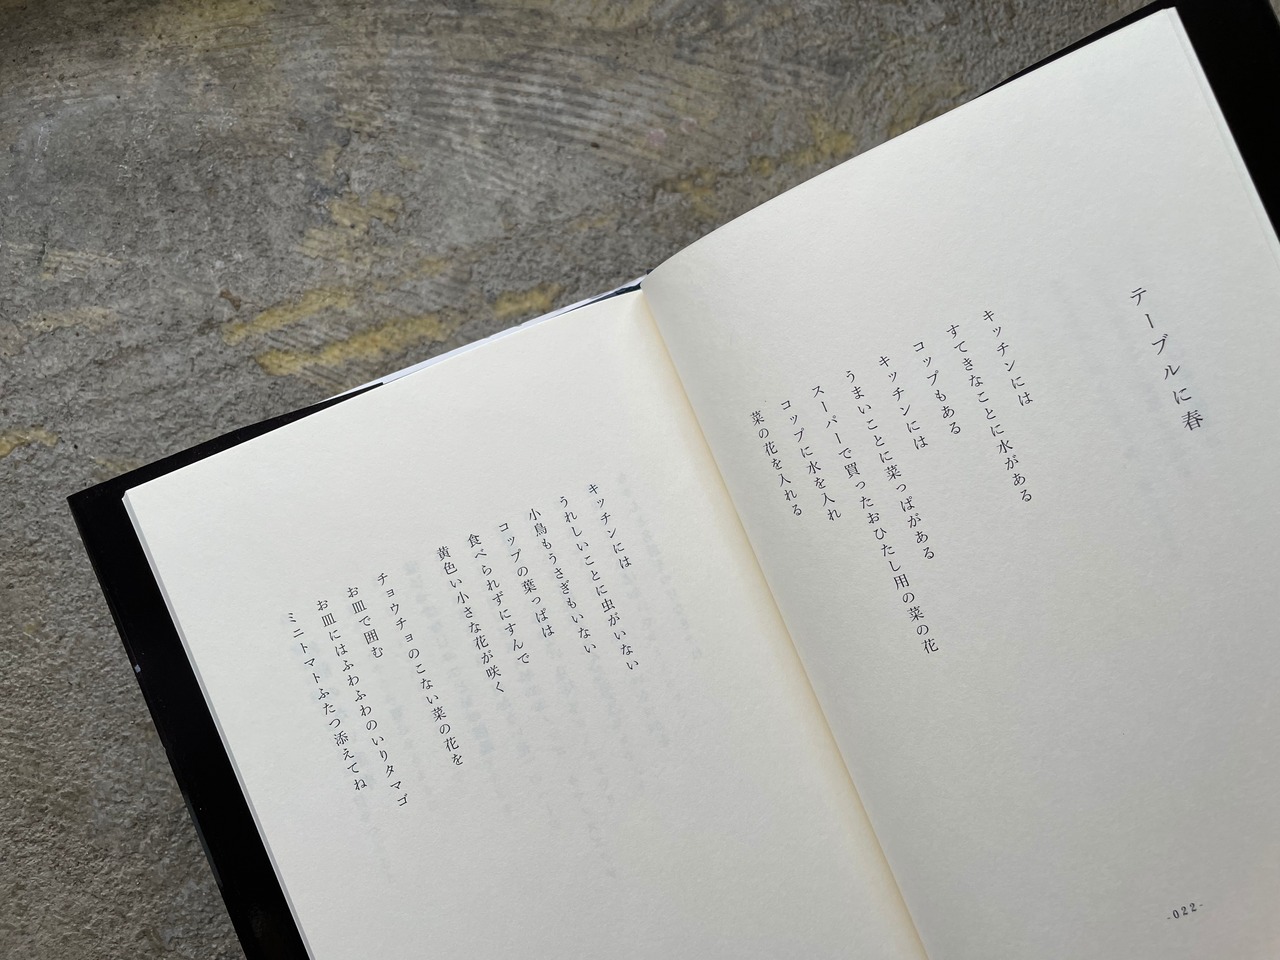 テーブルに春
キッチンには
すてきなことに水がある
コップもある
キッチンには
うまいことに菜っぱがある
スーパーで買ったおひたし用の菜の花
コップに水を入れ
菜の花を入れる
-022-
キッチンには
うれしいことに虫がいない
小鳥もうさぎもいない
コップの葉っぱは
食べられずにすんで
黄色い小さな花が咲く
チョウチョのこない菜の花を
お皿で囲む
お皿にはふわふわのいりタマゴ
ミニトマトふたつ添えてね